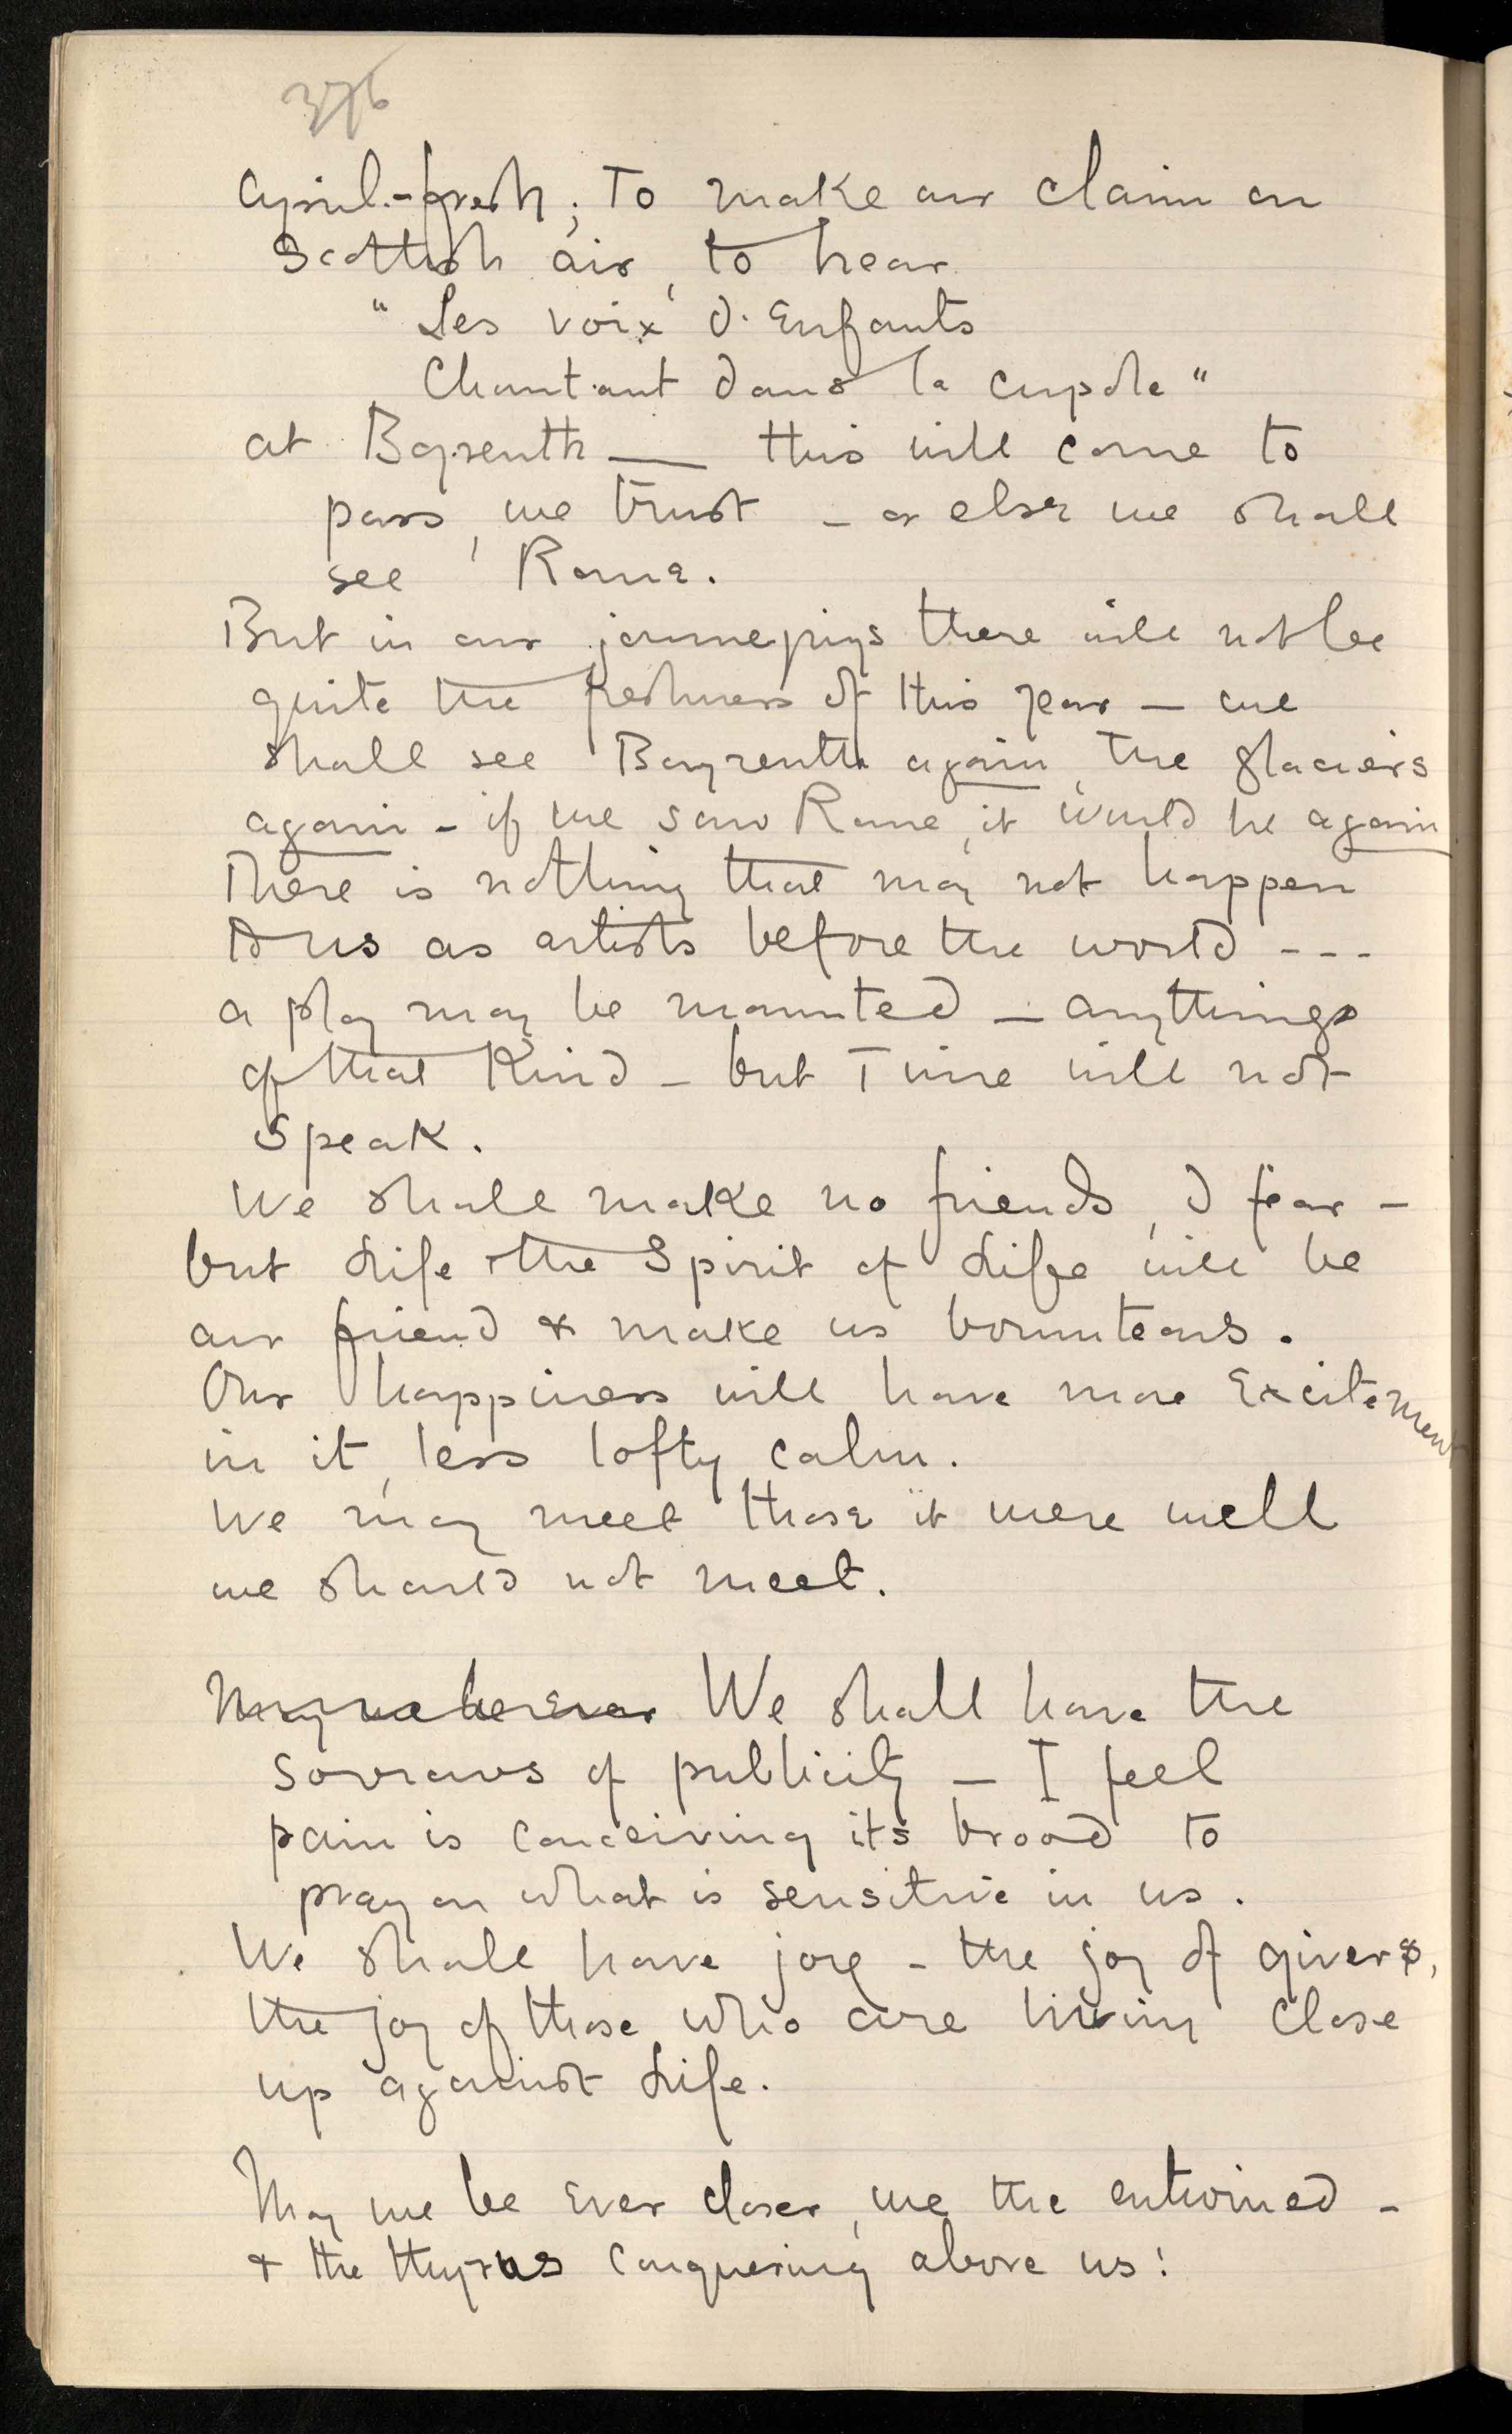 376
April-fresh; To make our claim on
Scottish air, to hear
"Les voix d'Enfants
Chantant dans la cupole"
at Bayreuth — this will come to
pass, we trust – or else we shall
see Rome.
But in our journeyings there will not be
quite the freshness of this year – we
shall see Bayreuth again, the glaciers
again – if we saw Rome, it would be again
There is nothing that may not happen
to us as artists before the world - - -
a play may be mounted – anythings
of that Kind – but Time will not
Speak.
We shall make no friends, I fear –
but Life the Spirit of Life will be
our friend & make us bounteous.
Our happiness will have more Excitement
in it, less lofty calm.
We may meet those it were well
we should not meet.
May we be Ever We shall have the
sorrows of publicity – I feel
pain is conceiving its brood to
pray on what is sensitive in us.
We shall have joy – the joy of givers,
the joy of those who are living close
up against Life.
May we be Ever closer, we the entwined –
& the thyrsus conquering above us!